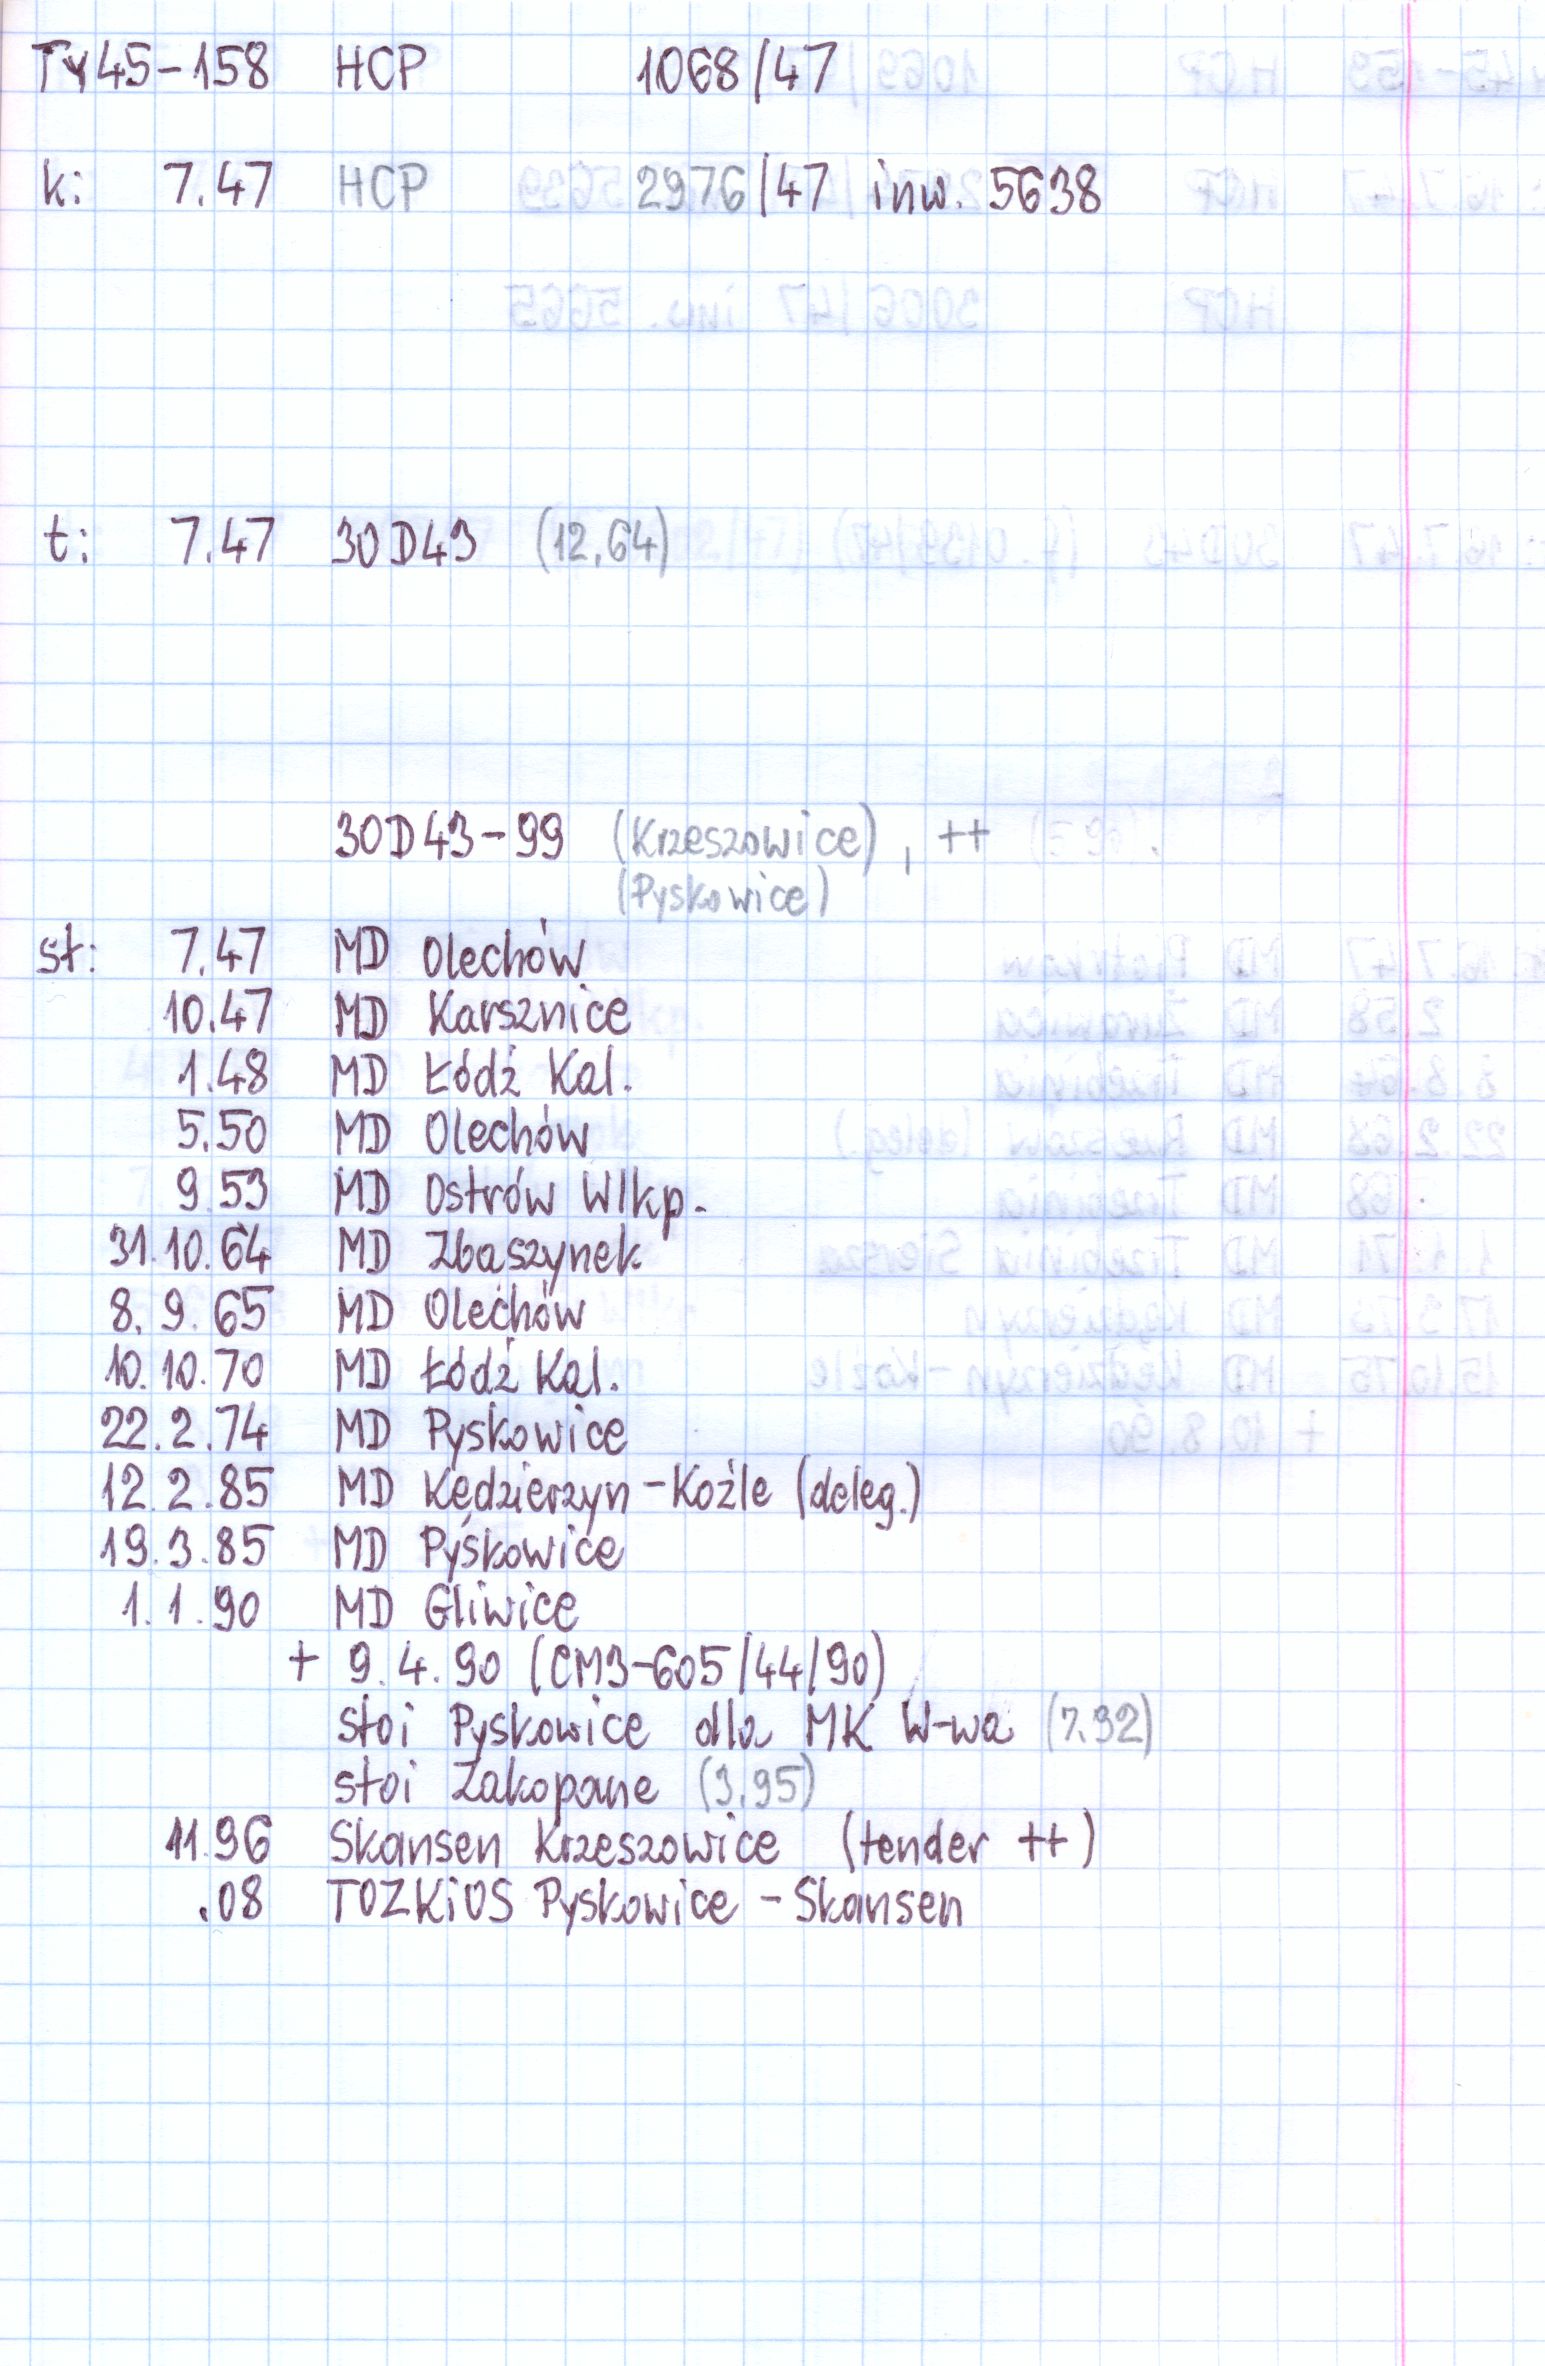 Ty45-158 HCP 1068/47
k: 7.47 HCP 2976/47 inw. 5638
t: 7.47 30D43 (12.64)
30D43-99 (Krzeszowice), ++
(Pyskowice)
st: 7.47 MD Olechów
10.47 MD Karsznice
1.48 MD Łódź Kal.
5.50 MD Olechów
9.53 MD Ostrów Wlkp.
31.10.64 MD Zbąszynek
8.9.65 MD Olechów
10.10.70 MD Łódź Kal.
22.2.74 MD Pyskowice
12.2.85 MD Kędzierzyn-Koźle (deleg.)
19.3.85 MD Pyskowice
1.1.90 MD Gliwice
+ 9.4.90 (CM3-605/44/90)
stoi Pyskowice dla MK W-wa (7.92)
stoi Zakopane (3.95)
11.96 Skansen Krzeszowice (tender ++)
.08 TOZKiOS Pyskowice - Skansen